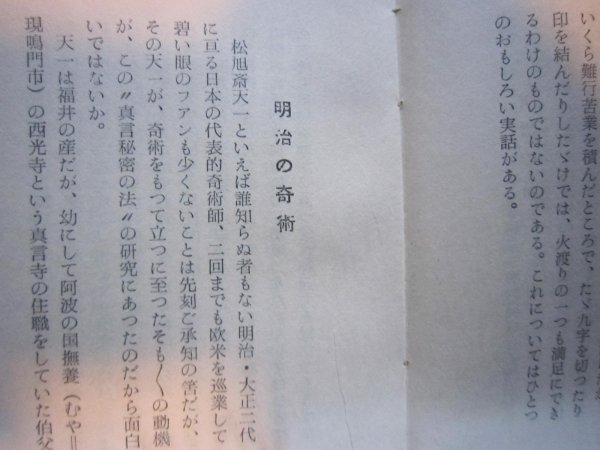 いくら難行苦業を積んだところで、たゞ九字を切つたり
印を結んだりしたゞけでは、火渡りの一つも満足にでき
るわけのものではないのである。これについてはひとつ
のおもしろい実話がある。
明治の奇術
松旭斎天一といえば誰知らぬ者もない明治・大正二代
に亘る日本の代表的奇術師、二回までも欧米を巡業して
碧い眼のファンも少くないことは先刻ご承知の筈だが、
その天一が、奇術をもつて立つに至つたそも〳〵の動機
が、この〃真言秘密の法〃の研究にあつたのだから面白
いではないか。
天一は福井の産だが、幼にして阿波の国撫養（むや＝
現鳴門市）の西光寺という真言寺の住職をしていた伯父